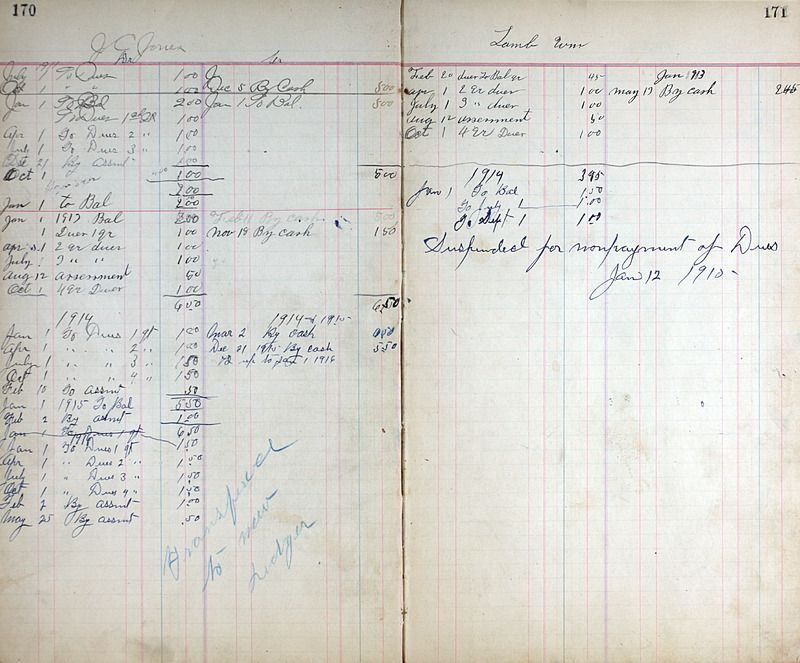 170
J C Jones
Dr Cr
July To Dues 1 00
Oct 1 " " 1 00 Dec 5 By Cash 5 00
Jan 1 To Bal 2 00 Jan 1 To Bal. 5 00
To Dues 1st qr 1 00
Apr 1 To Dues 2 " 1 00
July 1 To Dues 3 " 1 00
Oct 21 By Assmt 1 00
Oct 1 1 00 5 00
2 00
Jan 1 to Bal 2 00
Jan 1 1913 Bal 2 00 Feb 11 By cash 5 00
1 Dues 1 qr 1 00 Nov 18 By cash 1 50
apr 1 2 qr dues 1 00
July 1 3 " " 1 00
aug 12 assessment 50
Oct 1 4 qr Dues 1 00
6 50 6 50
1914 1914 & 1915
Jan 1 To Dues 1 qt 1 00 Mar 2 By Cash
Apr 1 " " 2 " 1 00 Dec 21 1915 By cash 5 50
July 1 " " 3 " 1 50 up to Jan 1 1916
Oct 1 " " 4 " 1 50
Feb 10 To assmt 50
Jan 1 1915 To Bal 5 50
Feb 2 By assmt 1 00
Jan To Dues 1 qt 6 50
Jan 1 To Dues 1 qt 1 50
Apr 1 " Dues 2 " 1 50
July 1 " Dues 3 " 1 50
Oct 1 " Dues 4 " 1 50
Feb 2 By assmt 1 00
May 25 By assmt 50
to new
Ledger
171
Lamb Wm
Feb 20 dues To Bal qr 45 Jan 1913
apr 1 2 qr dues 1 00 may 13 By cash 2 45
July 1 3 " dues 1 00
aug 12 assessment 50
Oct 1 4 qr Dues 1 00
1914 3 95
Jan 1 To Bal 1 50
To July 1 1 00
To Sept 1 1 00
Suspended for nonpayment of Dues
Jan 12 1915